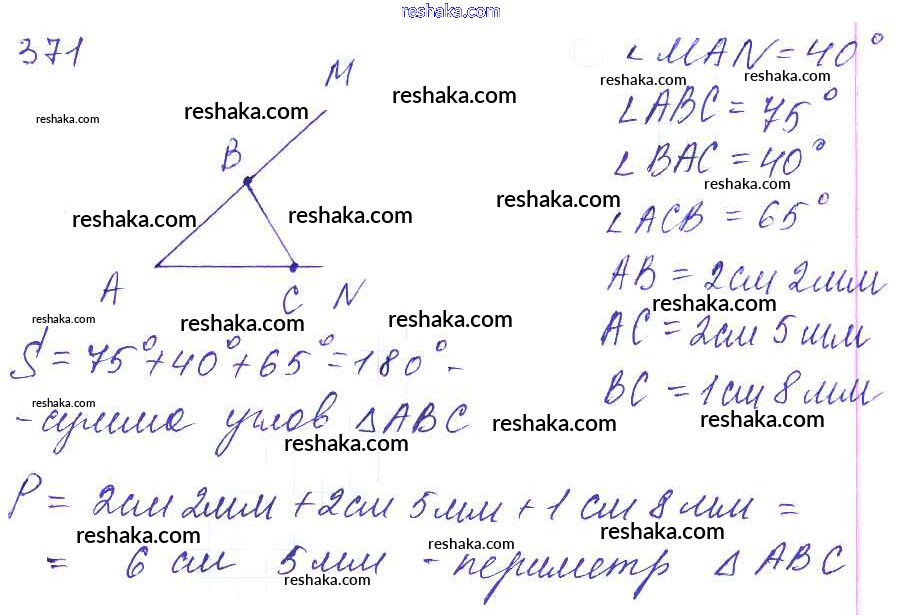 reshaka.com
371
∠MAN = 40°
reshaka.com
reshaka.com
M
reshaka.com
reshaka.com
∠ABC = 75°
reshaka.com
B
∠BAC = 40°
reshaka.com
reshaka.com
reshaka.com
reshaka.com
∠ACB = 65°
A
C
N
AB = 2см 2мм
reshaka.com
reshaka.com
reshaka.com
reshaka.com
AC = 2см 5мм
S = 75° + 40° + 65° = 180° -
BC = 1см 8мм
reshaka.com
- сумма углов ΔABC
reshaka.com
reshaka.com
reshaka.com
P = 2см 2мм + 2см 5мм + 1см 8мм =
reshaka.com
reshaka.com
reshaka.com
= 6 см 5мм - периметр Δ ABC
reshaka.com